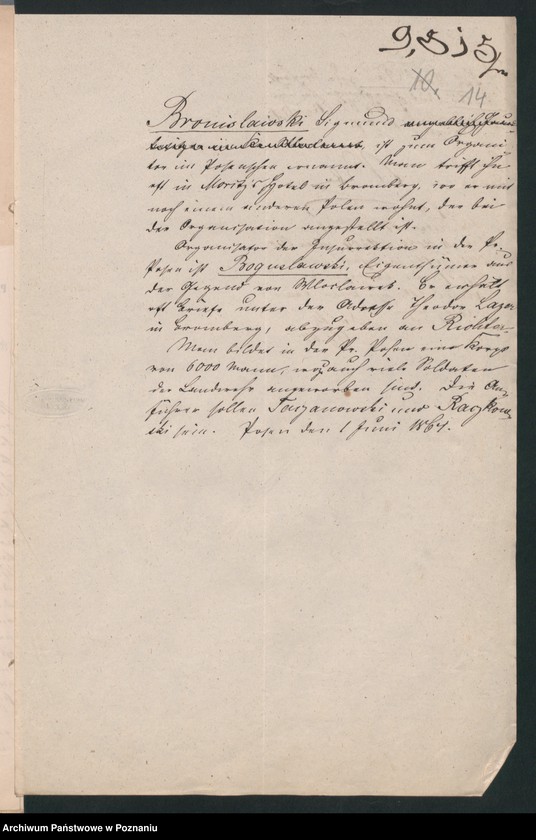 9,515
10.
14
Bronislawski Sigmund
ist zum Organi-
tor im Posenschen ernannt. Man trifft ihn
oft in Moritz Hotel in Bromberg, wo er mit
noch einem anderen Polen wohnt, der bei
der Organisation angestellt ist.
Organisator der Insurrektion in der Pr.
Posen ist Boguslawski, Eigenthümer aus
der Gegend von Wloclawek. Er enthält
oft Briefe unter der Adresse Theodor
in Bromberg, abzugeben an Richter.
Man bildet in der Pr. Posen ein Korps
von 6000 Mann, wozu auch viele Soldaten
der Landwehr angeworben sind. Die An-
führer sollen Taczanowski und Raczkow-
ski sein. Posen den 1 Juni 1864.
Archiwum Państwowe w Poznaniu